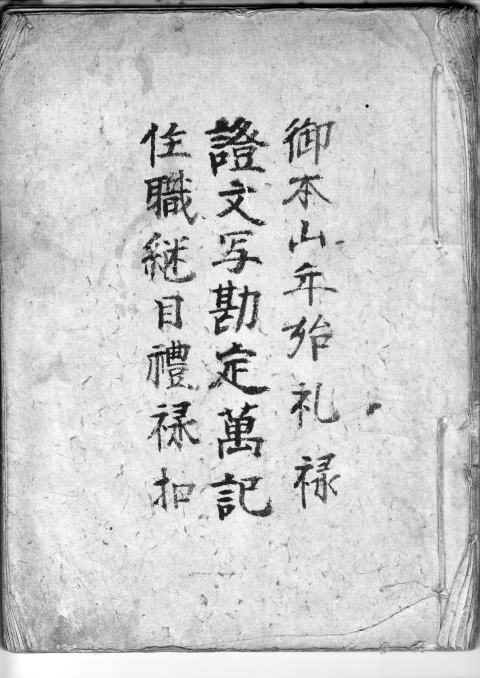 御本山年始礼禄
證文写勘定萬記
住職継目禮禄扣